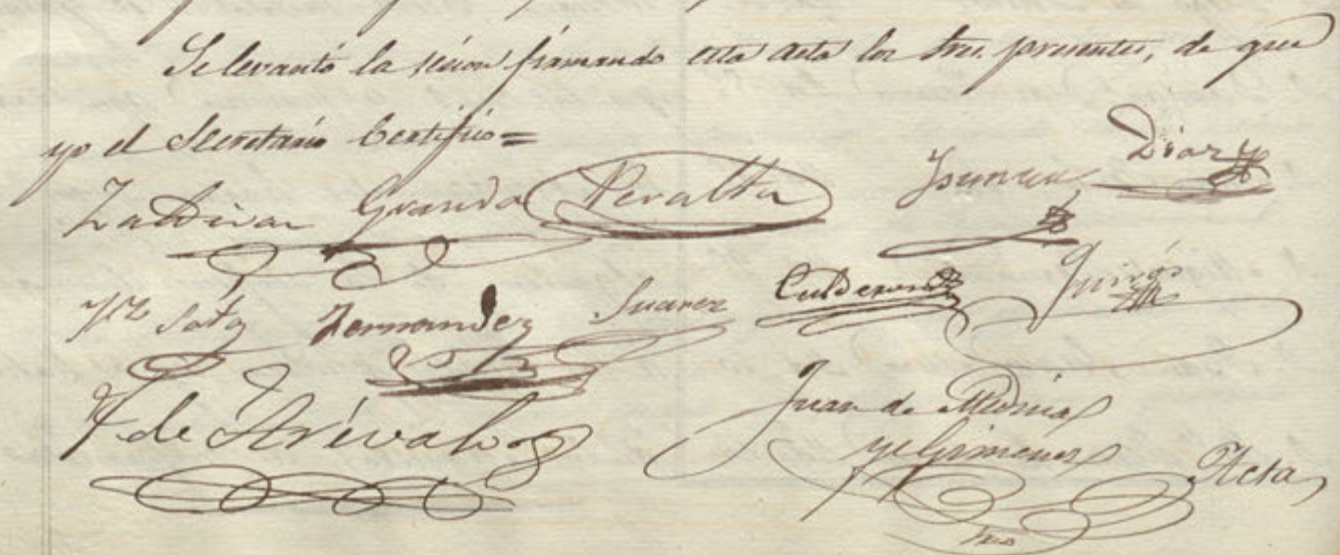 Se levantó la sesion firmando esta acta los Sres. presentes, de que
yo el Secretario Certifico =
Zaldivar Granda Peralta Diaz
Soto Fernandez Suarez Calderon Quirós
F de Arévalo
Juan de Medina
y Gimenez
Acta
Srio